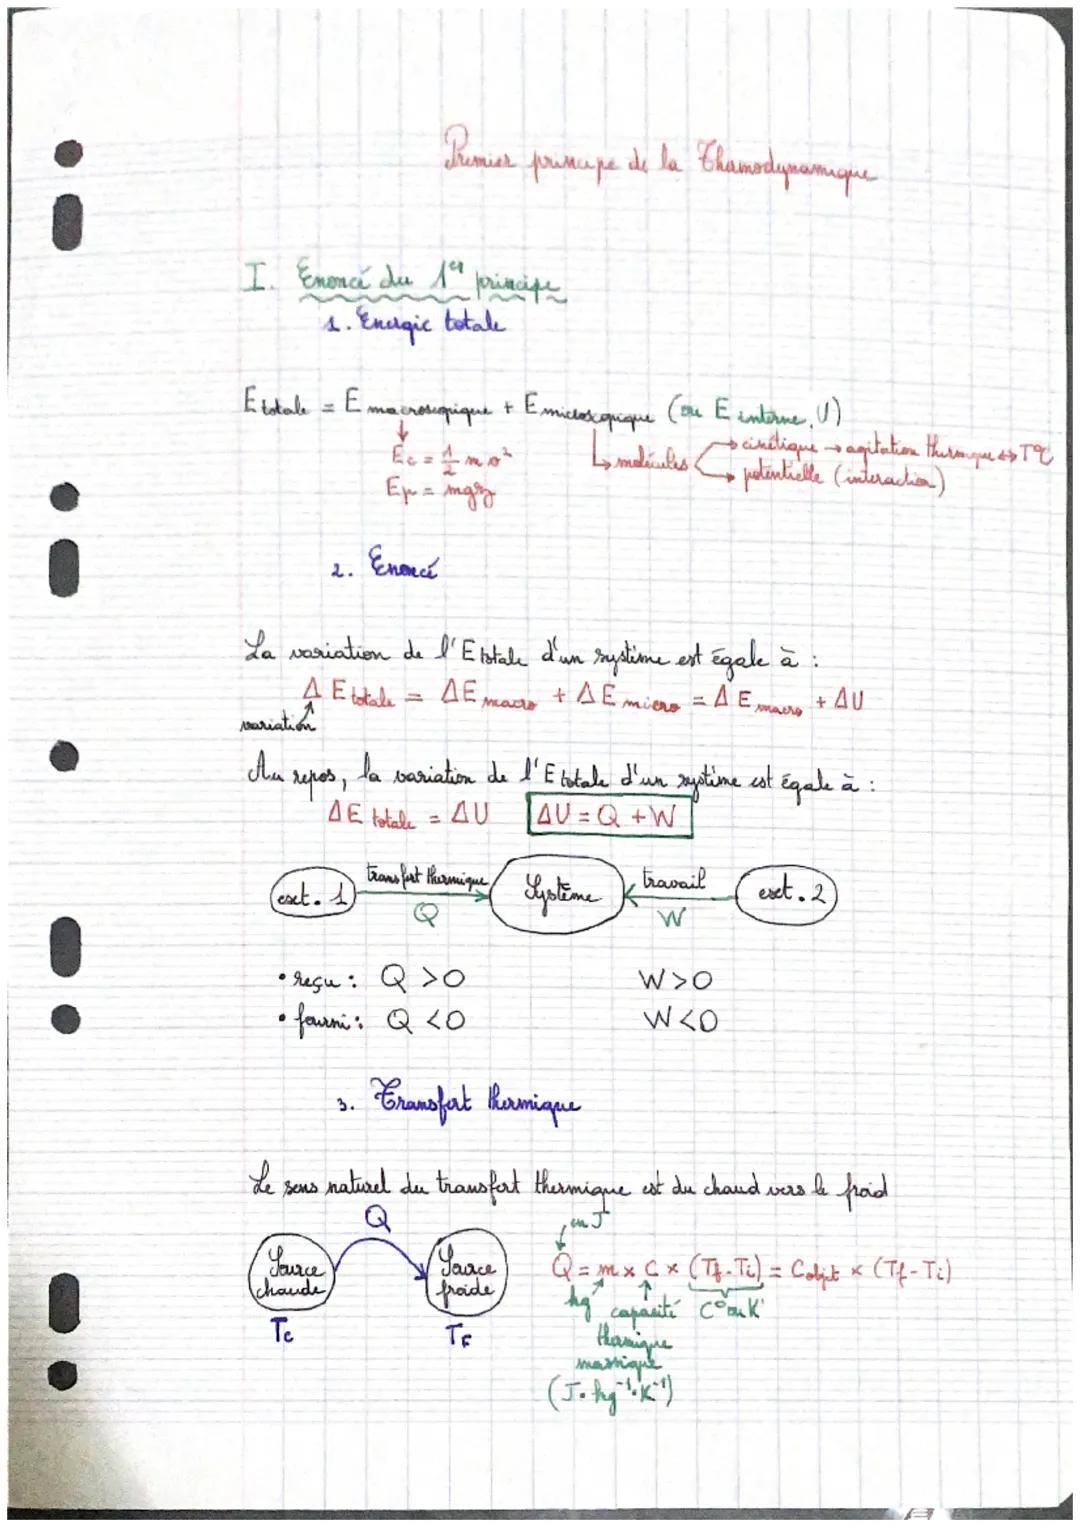 Premier principe de la Thermodynamique
I. Enoncé du 1er principe
1. Energie totale
E totale = E macroscopique + E microscopique (ou E interne, U)
Ec = 1/2 m v²
Ep = mgz
molécules
cinétique → agitation thermique ↔ T°C
potentielle (interaction)
2. Enoncé
La variation de l'E totale d'un système est égale à :
Δ E totale = ΔE macro + ΔE micro = Δ E macro + ΔU
variation
Au repos, la variation de l'E totale d'un système est égale à :
ΔE totale = ΔU ΔU = Q + W
ext. 1 transfert thermique Q Système travail W ext. 2
• reçu : Q >0 W>0
• fourni : Q <0 W<0
3. Transfert thermique
Le sens naturel du transfert thermique est du chaud vers le froid
Q
Source chaude
Source froide
Tc TF
en J
Q = m x C x (Tf - Ti) = Cobjet x (Tf - Ti)
kg capacité C° ou K
thermique
massique
(J. kg⁻¹. K⁻¹)